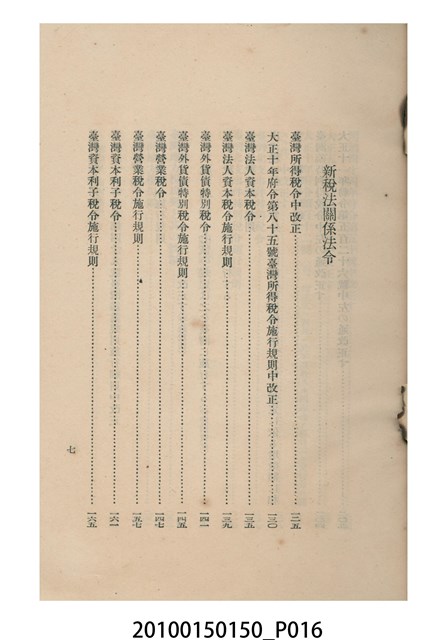 新稅法關係法令
臺灣所得稅令中改正……一二五
大正十年府令第八十五號臺灣所得稅令施行規則中改正……一三〇
臺灣法人資本稅令……一三五
臺灣法人資本稅令施行規則……一三九
臺灣外貨債特別稅令……一四一
臺灣外貨債特別稅令施行規則……一四五
臺灣營業稅令……一四七
臺灣營業稅令施行規則……一五七
臺灣資本利子稅令……一六一
臺灣資本利子稅令施行規則……一六五
七
20100150150_P016